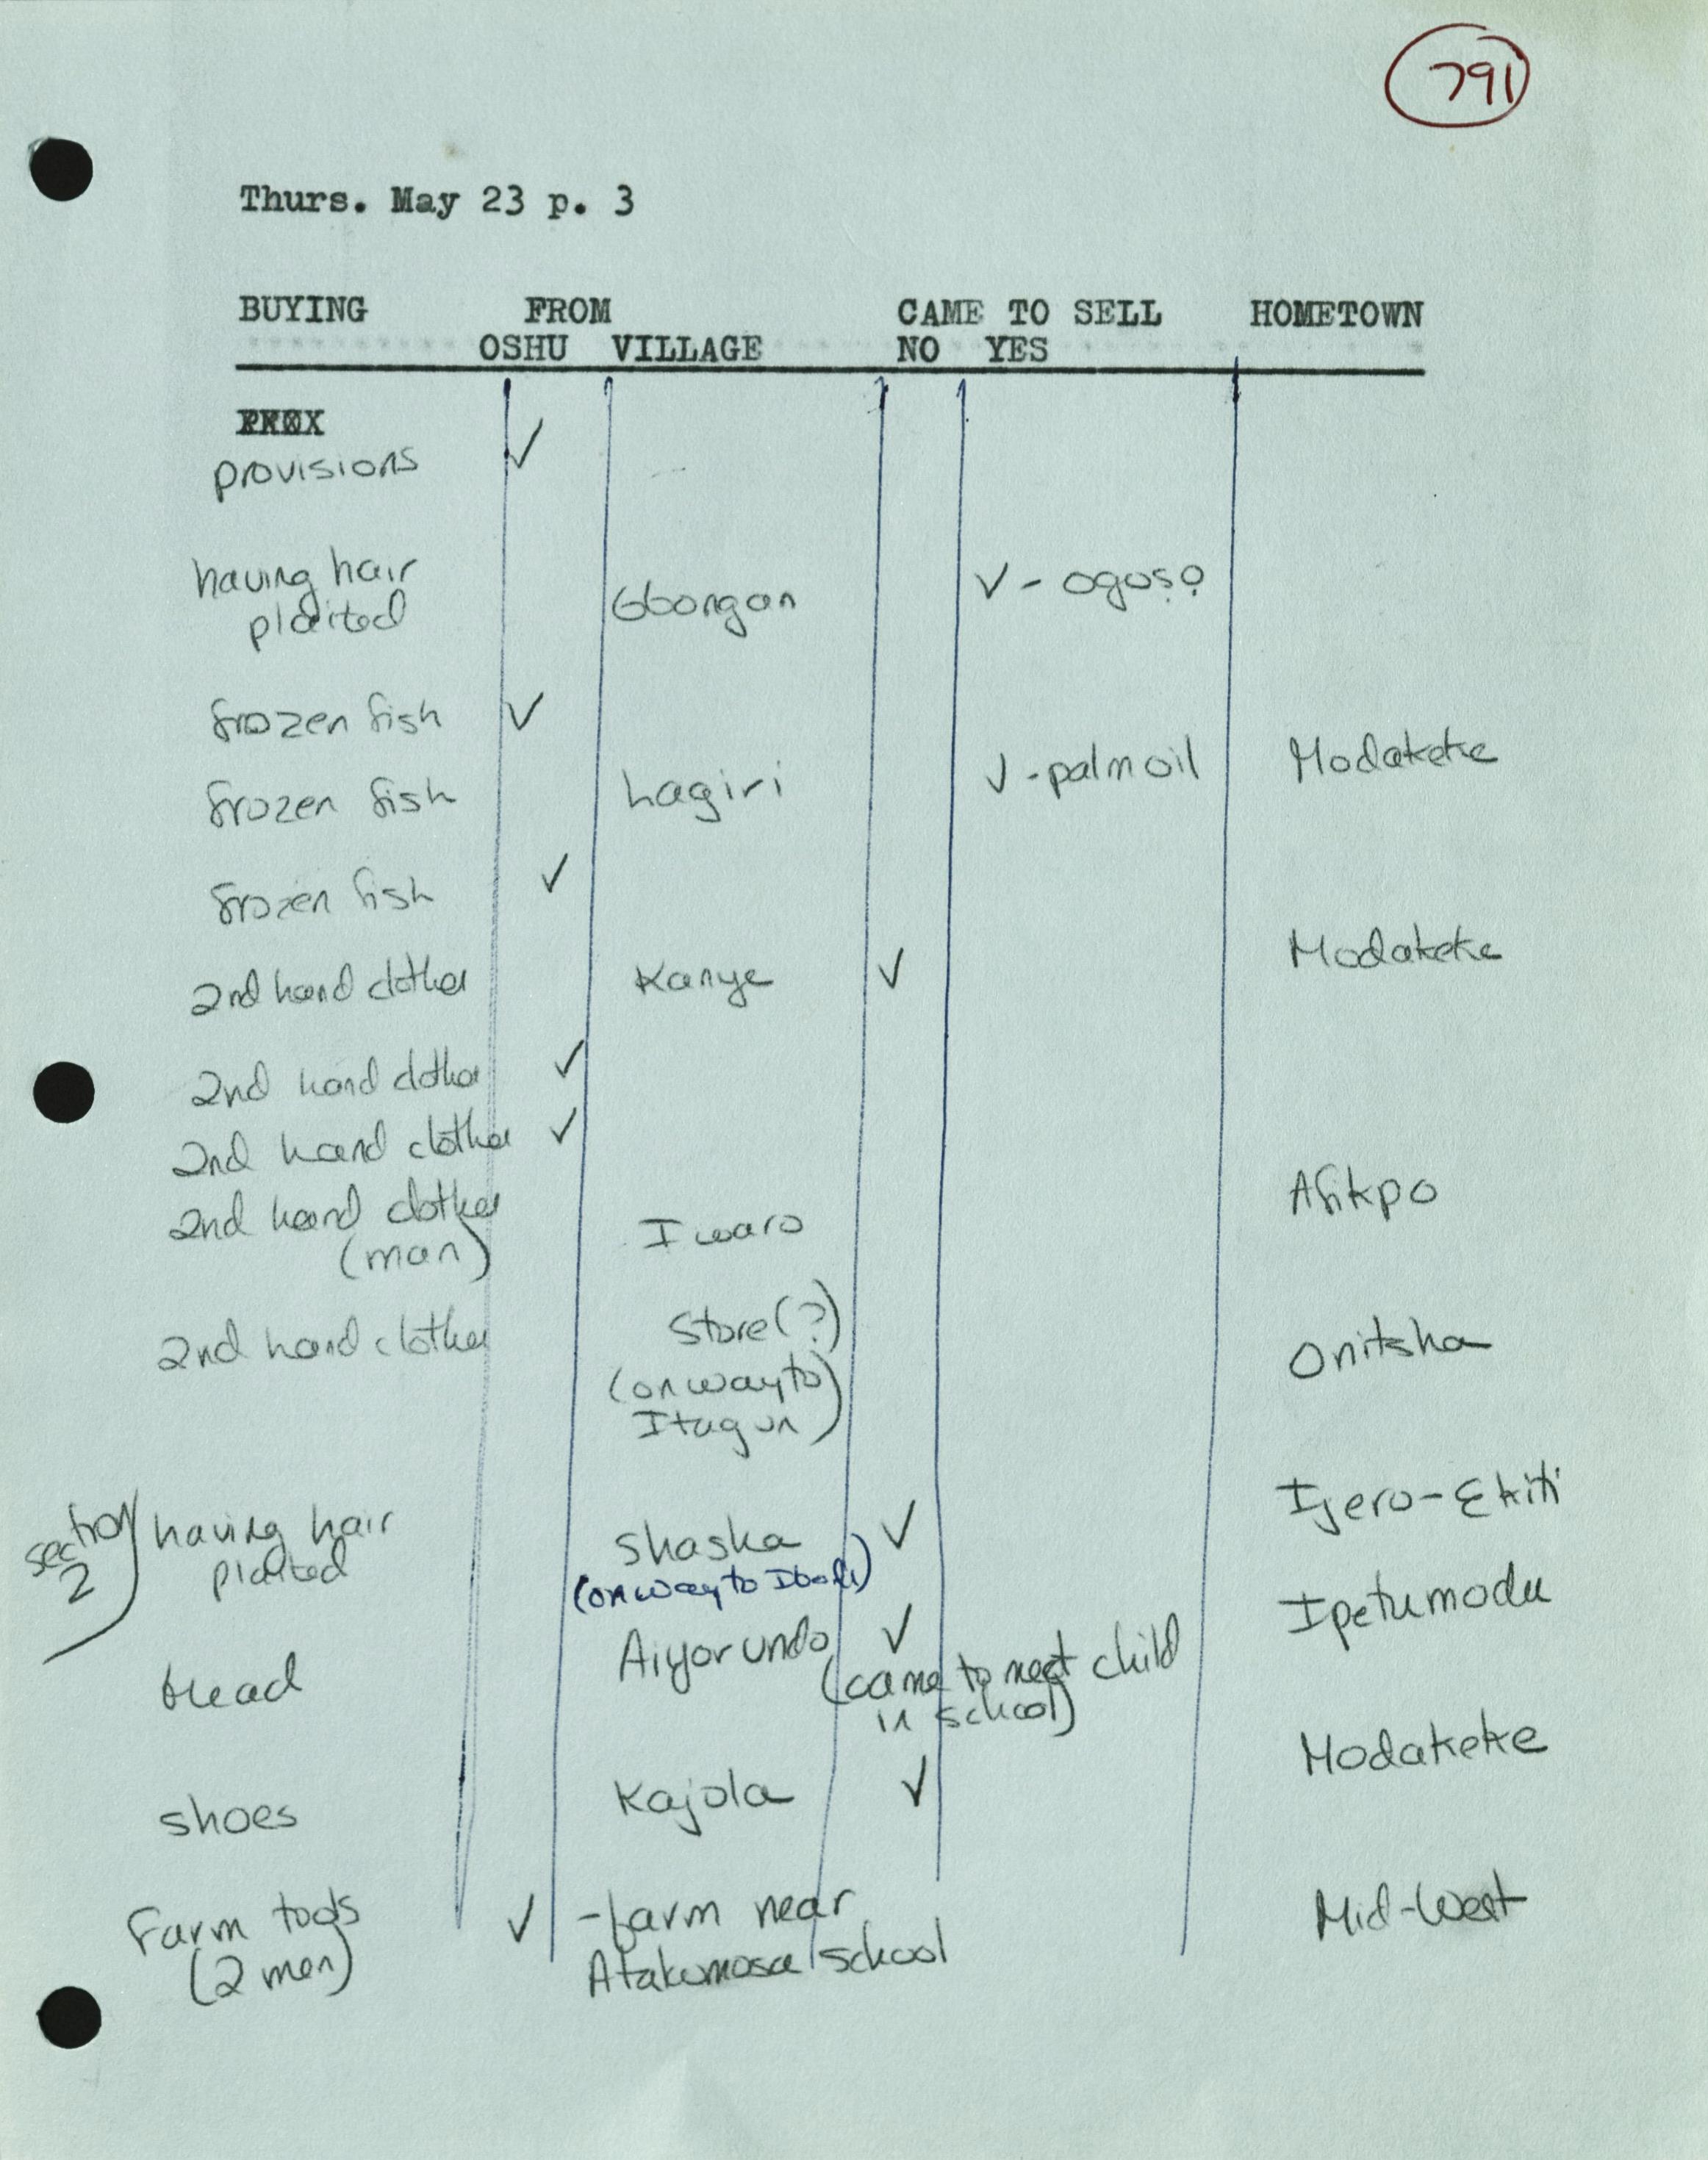 791
Thurs. May 23 p. 3
BUYING FROM CAME TO SELL HOMETOWN
OSHU VILLAGE NO YES
provisions ✓
having hair
plaited Gbongan ✓ - ogusọ
frozen fish ✓
frozen fish Lagiri ✓ - palm oil Modakeke
frozen fish ✓
2nd hand clothes Kanye ✓ Modakeke
2nd hand clothes ✓
2nd hand clothes ✓
2nd hand clothes Iwaro Afikpo
(man)
2nd hand clothes Store(?) Onitsha
(on way to
Itagun)
section
2
having hair Shasha ✓ Ijero-Ekiti
plaited (on way to
Aiyorundo ✓ Ipetumodu
bread (came to meet child
in school)
shoes Kajola ✓ Modakeke
Farm tools ✓ -farm near Mid-West
(2 men) Atakumosa school